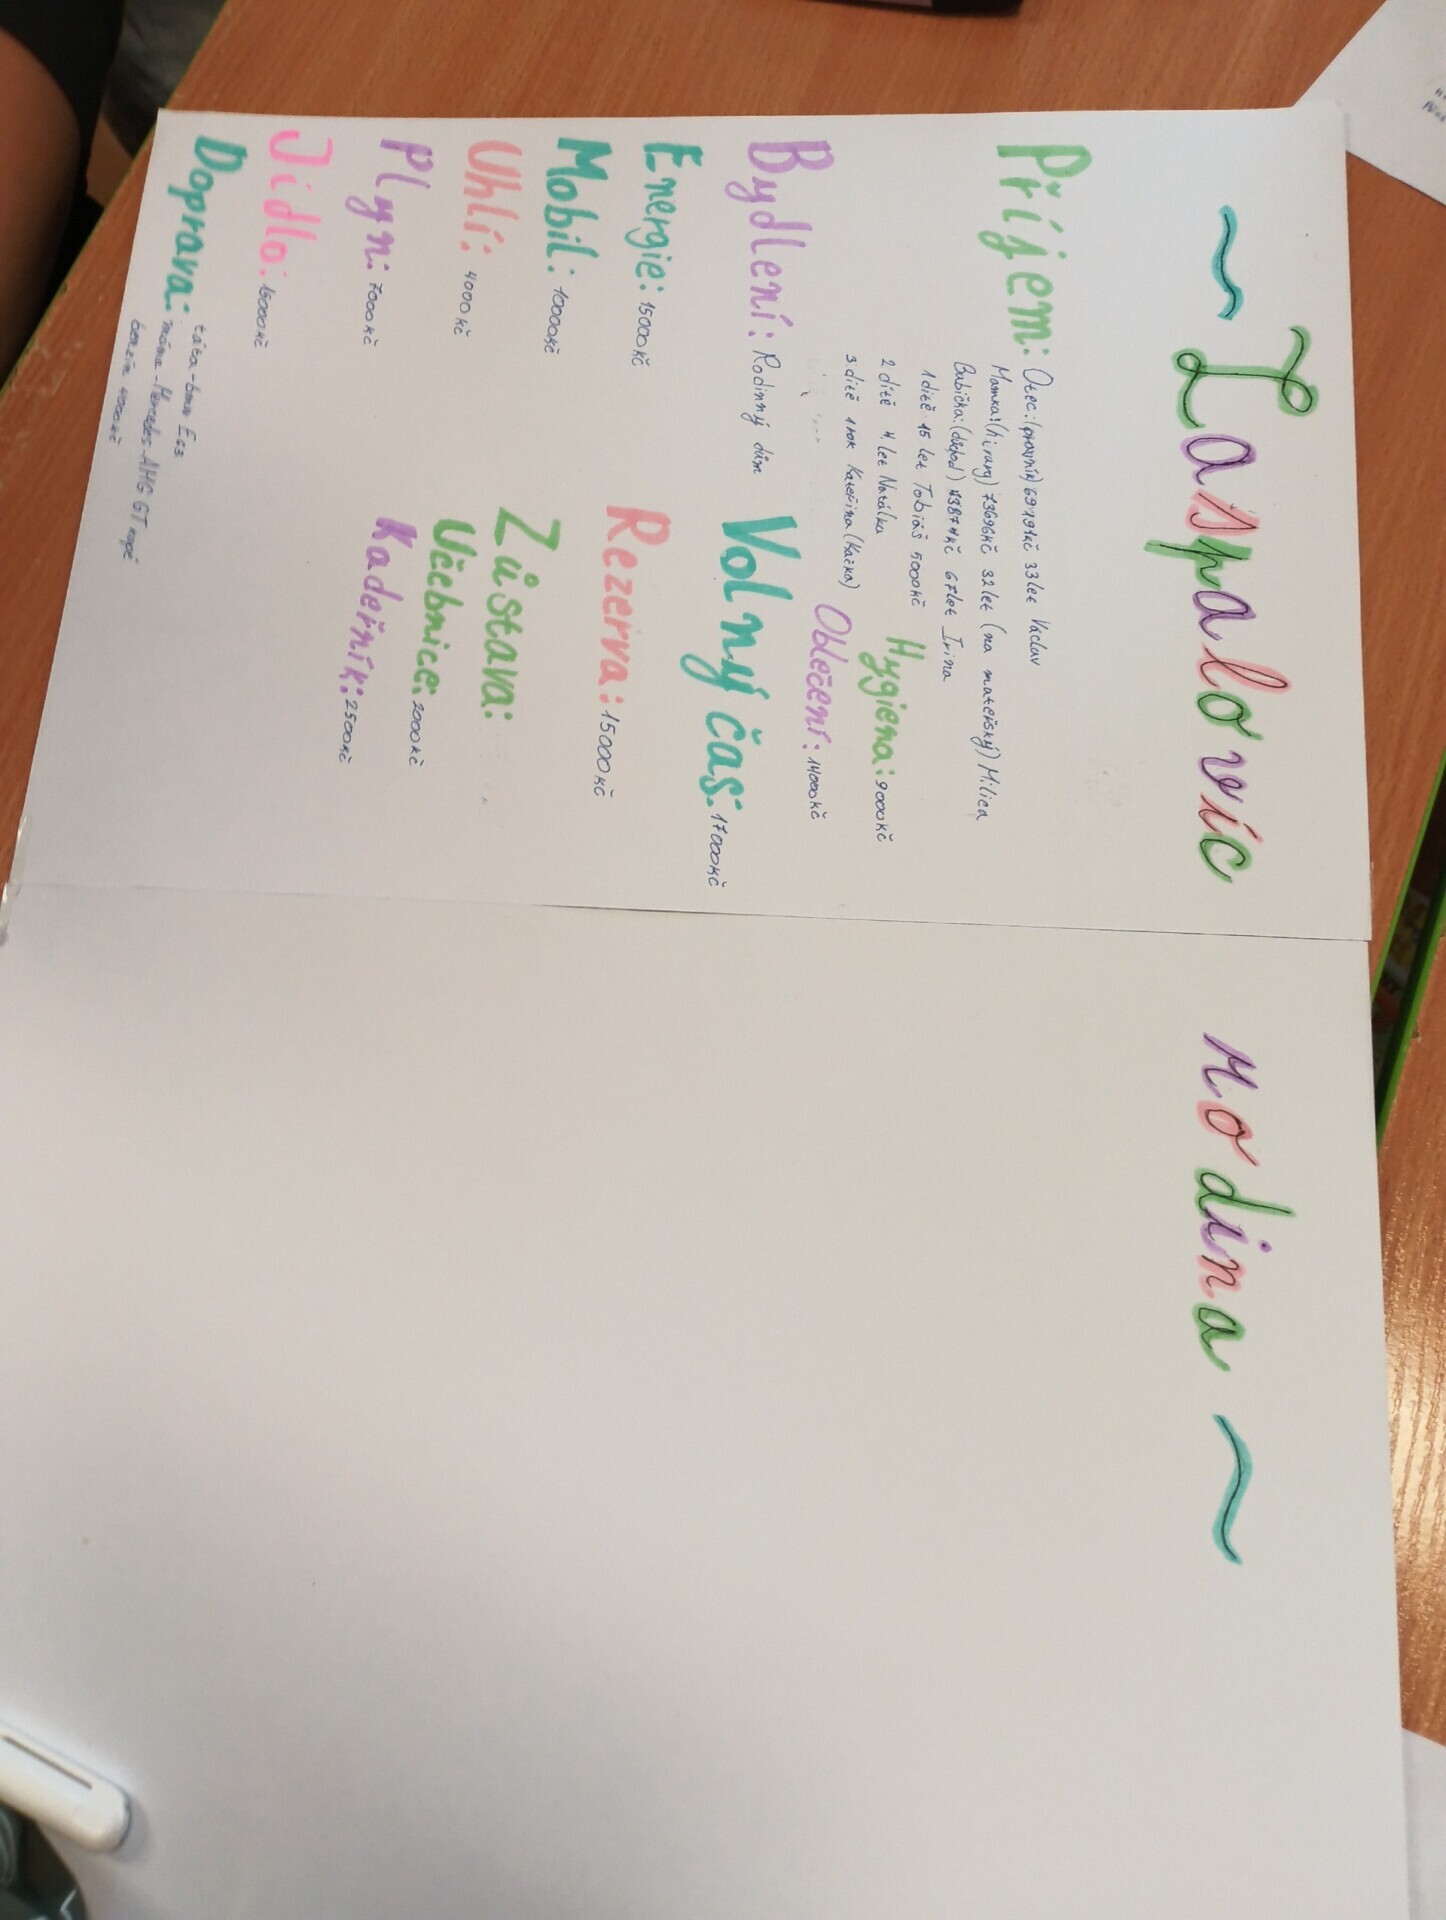 ~ Laspalovic rodina ~
Příjem: Otec: (právník) 69191kč 33let Václav
Mamka: (hirurg) 73696kč 32let (na mateřský) Milica
Babička: (důchod) 13874kč 67let Irina
1 dítě 15 let Tobiáš 5000kč
2 dítě 4 let Natálka
3 dítě 1 rok Kateřina (Kačka)
Hygiena: 9000kč
Oblečení: 14000kč
Bydlení: Rodinný dům
Volný čas: 17000kč
Energie: 15000kč
Rezerva: 15000kč
Mobil: 10000kč
Zůstava:
Uhlí: 4000kč
Učebnice: 2000kč
Plyn: 7000kč
Kadeřník: 2500kč
Jídlo: 15000kč
Doprava: táta-bmw
máma-Mercedes-AMG GT kupé
benzín 4000kč